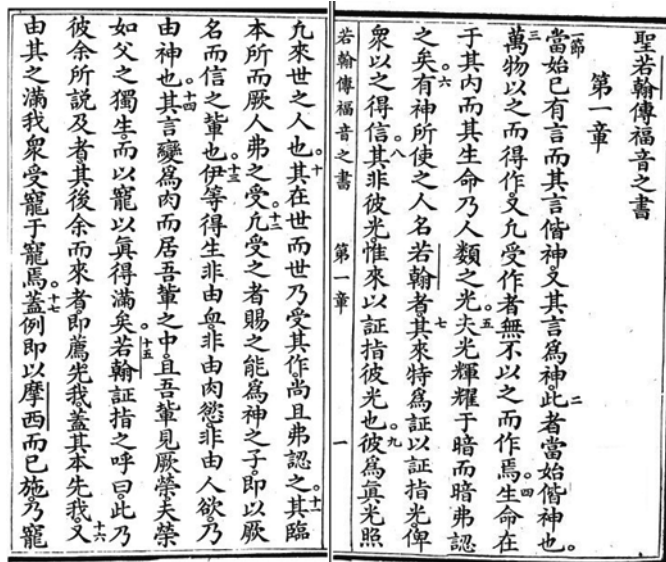 聖若翰傳福音之書
第一章
一節當始已有言而其言偕神又其言爲神。此者當始偕神也。二
三萬物以之而得作又凡受作者無不以之而作焉。四生命在
于其內而其生命乃人類之光。五夫光輝耀于暗而暗弗認
之矣。六有神所使之人名若翰者七其來特爲証以証指光俾
衆以之得信。八其非彼光惟來以証指彼光也。九彼爲眞光照
若翰傳福音之書 第一章 一
凢來世之人也。十其在世而世乃受其作尚且弗認之。十一其臨
本所而厥人弗之受。十二凢受之者賜之能爲神之子即以厥
名而信之輩也。十三伊等得生非由血非由肉慾非由人欲乃
由神也。十四其言變爲肉而居吾輩之中且吾輩見厥榮夫榮
如父之獨生而以寵以眞得滿矣。十五若翰証指之呼曰此乃
彼余所說及者其後余而來者即薦先我蓋其本先我。十六又
由其之滿我衆受寵于寵焉。十七蓋例即以摩西而已施乃寵